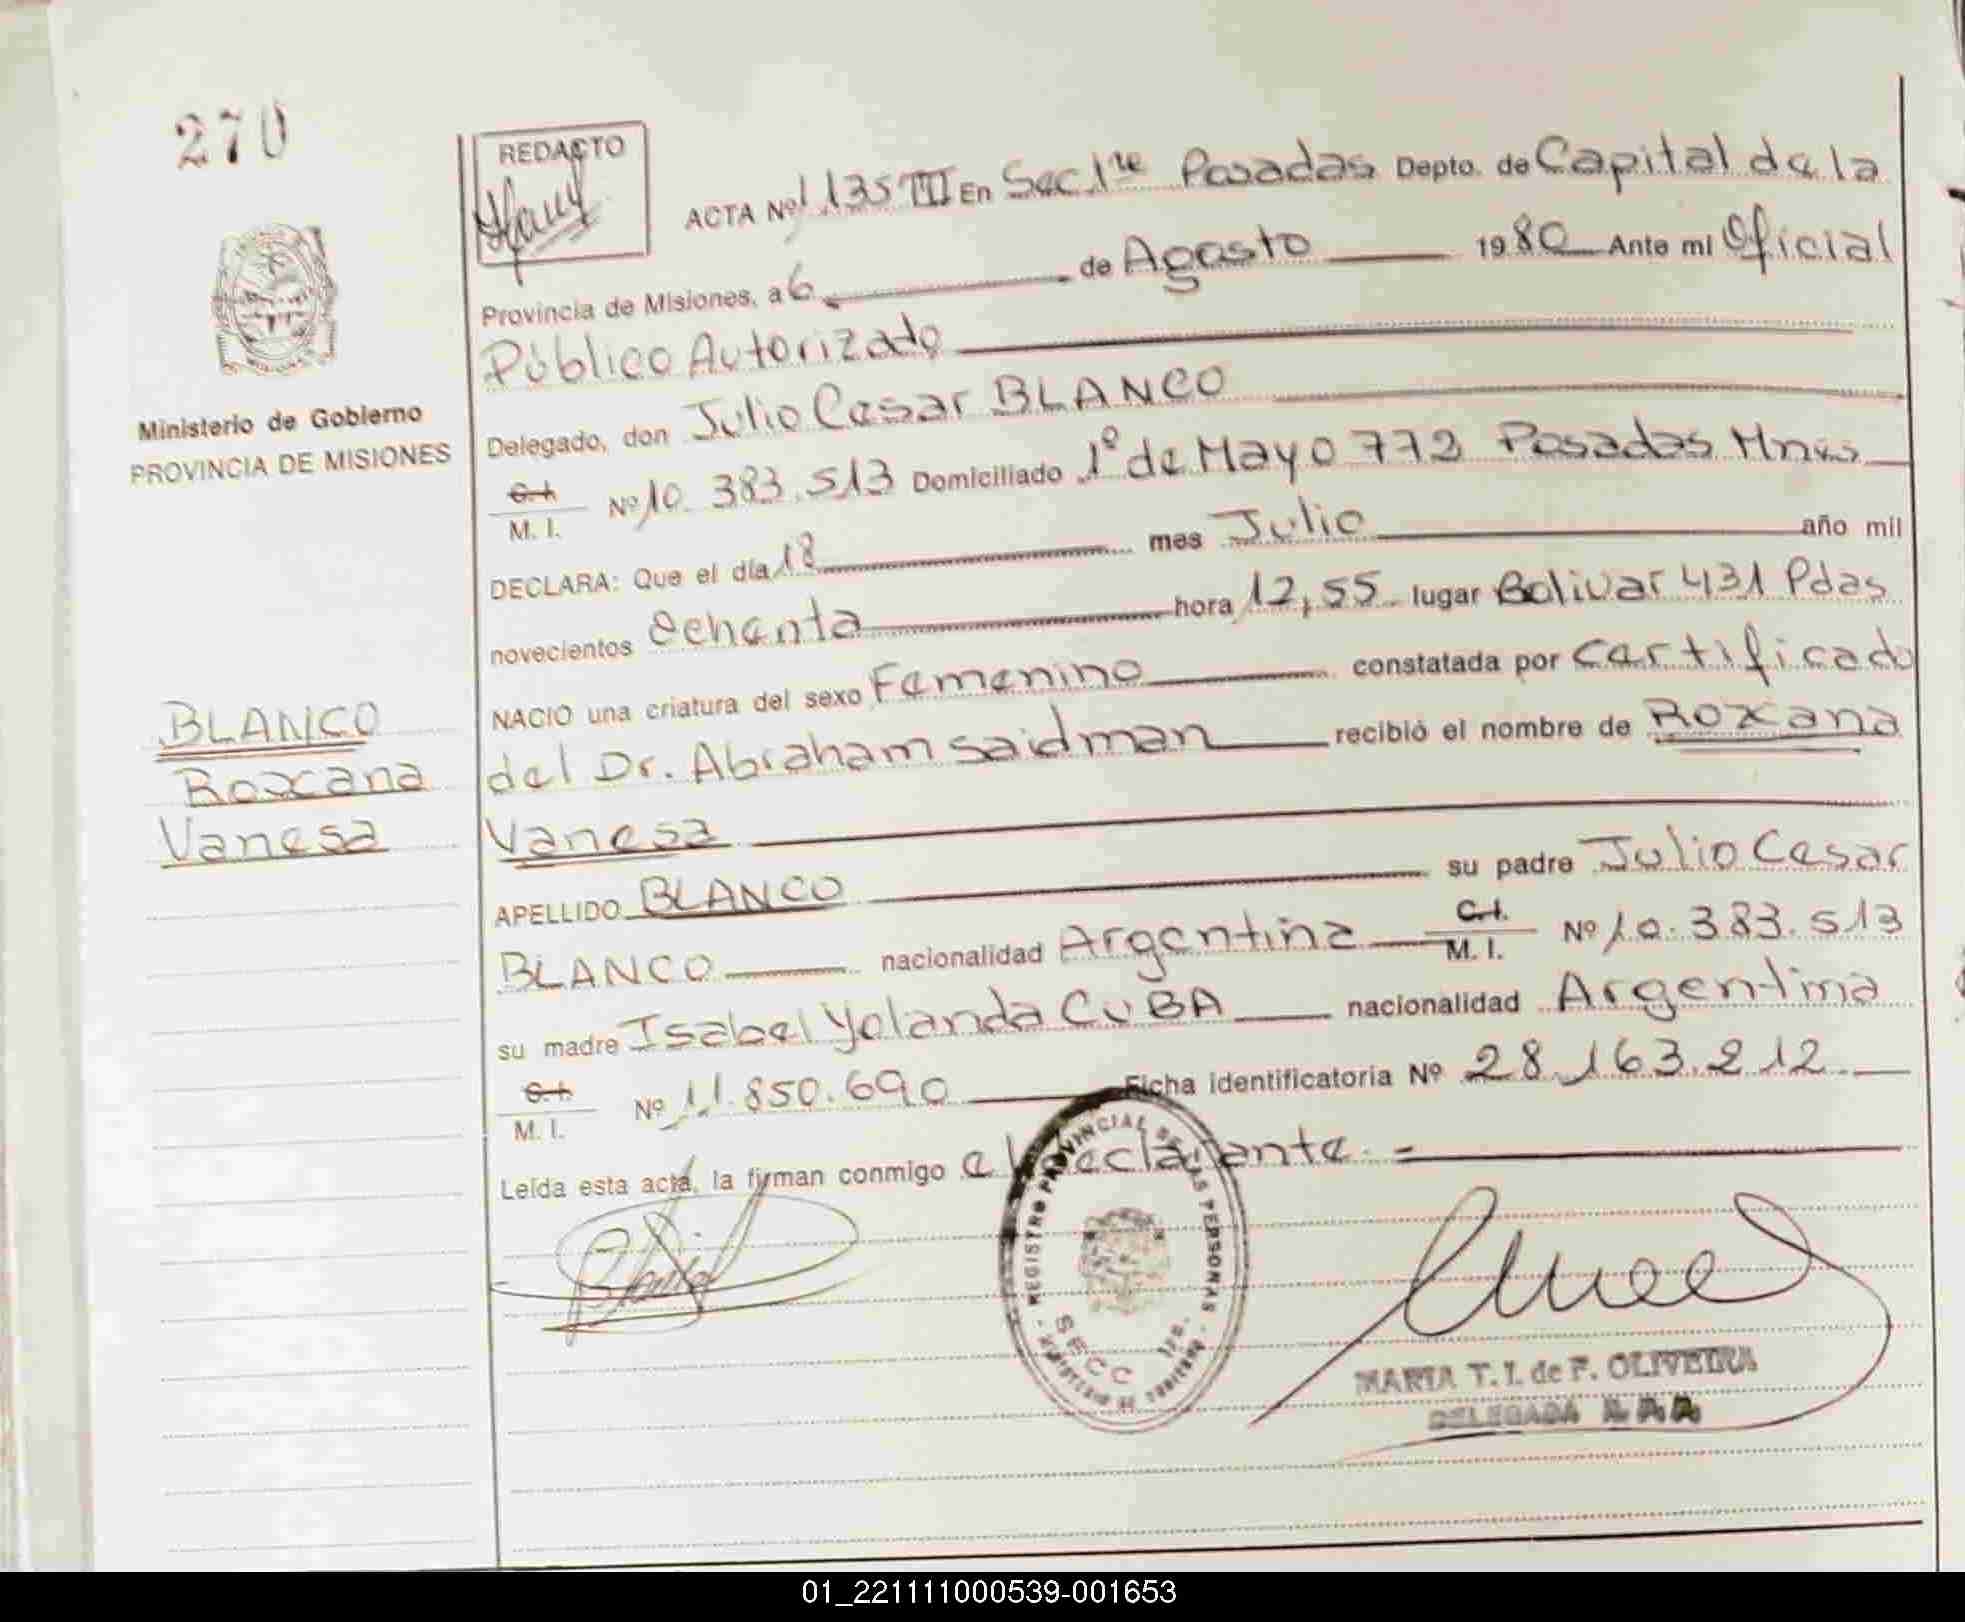 270
REDACTO
ACTA Nº 1135 III En Sec. 1re Posadas Depto. de Capital de la
Provincia de Misiones, a 6 de Agosto 1980 Ante mi Oficial
Público Autorizado
Delegado, don Julio Cesar BLANCO
C.I. M. I. Nº 10.383.513 Domiciliado 1º de Mayo 772 Posadas Mnes
DECLARA: Que el día 18 mes Julio año mil
novecientos ochenta hora 12,55 lugar Bolivar 431 Pdas
NACIO una criatura del sexo Femenino constatada por certificado
del Dr. Abraham Saidman recibió el nombre de Roxana
Vanesa
APELLIDO BLANCO su padre Julio Cesar
BLANCO nacionalidad Argentina C.I. M. I. Nº 10.383.513
su madre Isabel Yolanda CUBA nacionalidad Argentina
C.I. M. I. Nº 11.850.690 Ficha identificatoria Nº 28.163.212
Leída esta acta, la firman conmigo el declarante.=
Ministerio de Gobierno
PROVINCIA DE MISIONES
BLANCO
Roxana
Vanesa
REGISTRO PROVINCIAL DE LAS PERSONAS
SECC 1ra.
MARIA T. I. de F. OLIVEIRA
DELEGADA
01_221111000539-001653